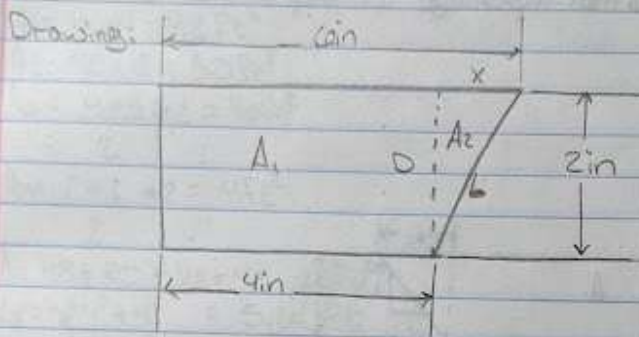 Drawing:
6in
x
A₁
D
A₂
b
2in
4in